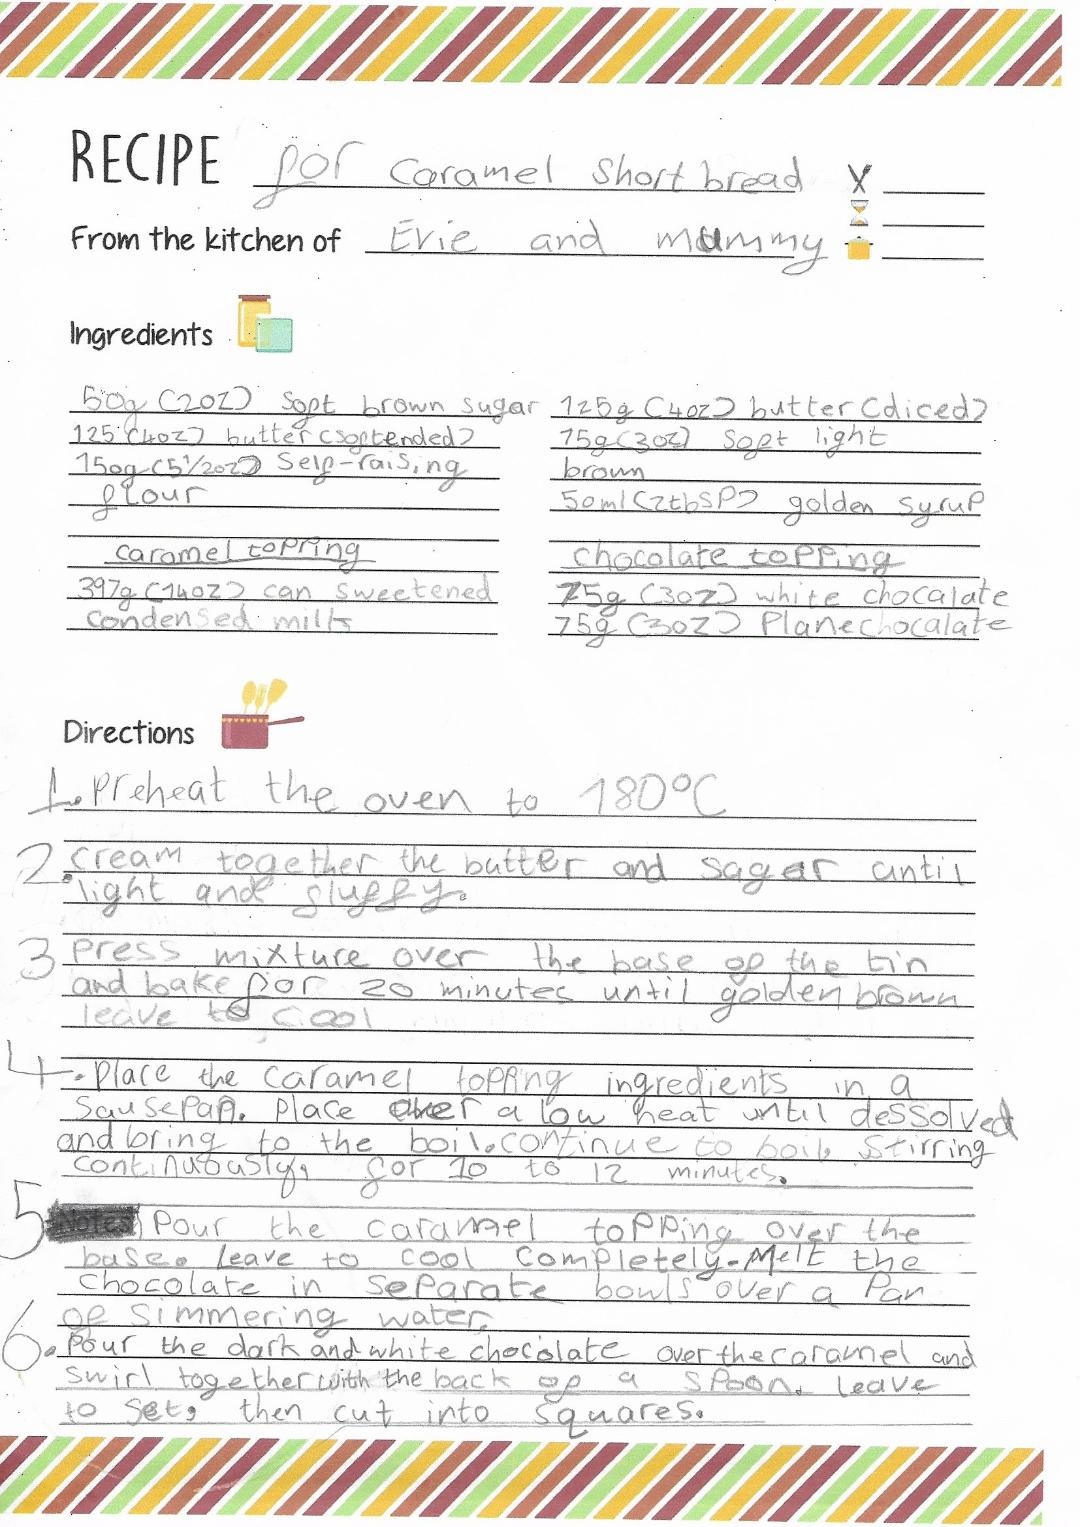 RECIPE for caramel short bread
From the kitchen of Evie and mummy
Ingredients
50g (2oz) Sopt brown sugar
125 (4oz) butter (soptended)
150g (5 1/2oz) Selp-raising
flour
caramel topping
397g (14oz) can sweetened
condensed milk
125g (4oz) butter (diced)
75g (3oz) Sopt light
brown
50ml (2tbsp) golden syrup
chocolate topping
75g (3oz) white chocalate
75g (3oz) Plane chocalate
Directions
1. Preheat the oven to 180°C
2. cream together the butter and sagar until
light and fluffy.
3 press mixture over the base op the tin
and bake for 20 minutes until golden brown
leave to cool
4. Place the caramel topping ingredients in a
Sausepan. Place over a low heat until dessolved
and bring to the boil. continue to boil, Stirring
continuously, for 10 to 12 minutes.
5 Notes Pour the caramel topping over the
base. Leave to cool completely. Melt the
chocolate in separate bowls over a Pan
op simmering water.
6. Pour the dark and white chocolate over the caramel and
swirl together with the back op a spoon. leave
to set, then cut into squares.